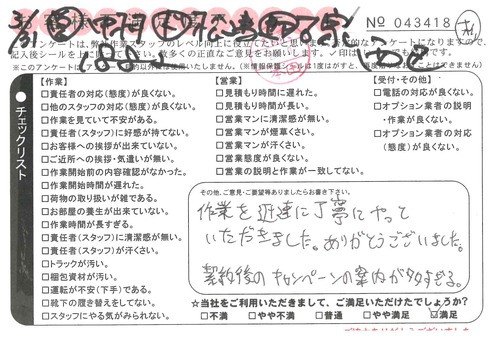 № 043418
アンケートは、弊社作業スタッフのレベル向上に役立てたいと思います
記入後シールを上に
チェックリスト
【作業】
□責任者の対応(態度)が良くない。
□他のスタッフの対応(態度)が良くない。
□作業を見ていて不安がある。
□責任者(スタッフ)に好感が持てない。
□お客様への挨拶が出来ていない。
□ご近所への挨拶・気遣いが無い。
□作業開始前の内容確認がなかった。
□作業開始時間が遅れた。
□荷物の取り扱いが雑である。
□お部屋の養生が出来ていない。
□作業時間が長すぎる。
□責任者(スタッフ)に清潔感が無い。
□責任者(スタッフ)が汗くさい。
□トラックが汚い。
□梱包資材が汚い。
□運転が不安(下手)である。
□靴下の履き替えをしてない。
□スタッフにやる気がみられない。
【営業】
□見積もり時間に遅れた。
□見積もり時間が長い。
□営業マンに清潔感が無い。
□営業マンが煙草くさい。
□営業マンが汗くさい。
□営業態度が良くない。
□営業の説明と作業が一致してない。
【受付・その他】
□電話の対応が良くない。
□オプション業者の説明
・作業が良くない。
□オプション業者の対応
(態度)が良くない。
その他、ご意見・ご要望等ありましたらお書き下さい。
作業を迅速に丁寧にやって
いただきました。ありがとうございました。
契約後のキャンペーンの案内が多すぎる。
☆当社をご利用いただきまして、ご満足いただけたでしょうか?
□不満 □やや不満 □普通 □やや満足 □満足